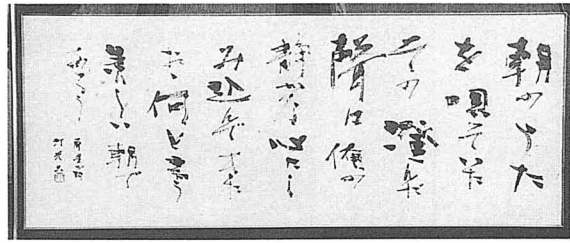 朝のうた
を唄っていた
その澄んだ
聲は俺の
静かな心にし
み込んできた
おゝ何と言う
美しい朝で
あろう